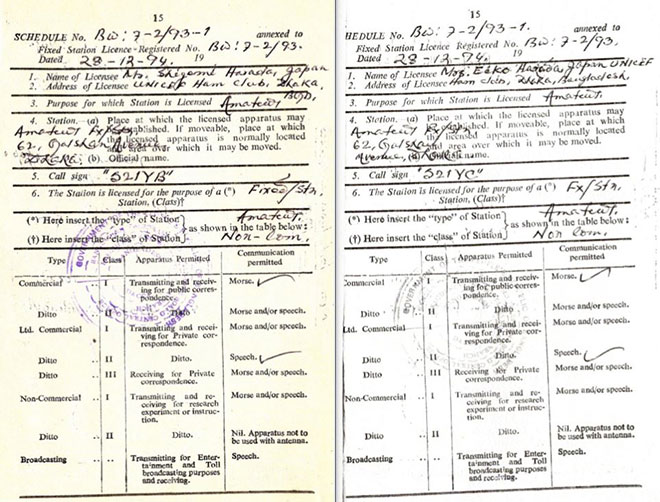 15
SCHEDULE No. BW: 7-2/93-1 annexed to
Fixed Station Licence Registered No. BW: 7-2/93.
Dated 28-12-94. 19
1. Name of Licensee Mr. Shigemi Harada, Japan
2. Address of Licensee UNICEF Ham Club, Dhaka,
3. Purpose for which Station is Licensed Amateur
4. Station. (a) Place at which the licensed apparatus may
established. If moveable, place at
the licensed apparatus is normally located
and area over which it may be moved.
62, Gulshan Avenue
Dhaka. (b) Official name.
5. Call sign "S21YB"
6. The Station is licensed for the purpose of a (*) Fixed/Stn.
Station, (Class)†
Amateur.
(*) Here insert the "type" of Station
as shown in the table below:
(†) Here insert the "class" of Station Non-Com.
Type Class Apparatus Permitted Communication permitted
Commercial .. I Transmitting and receiv-
ing for public corres-
pondence. Morse.
Ditto .. II Ditto Morse and/or speech.
Ltd. Commercial .. I Transmitting and recei-
ving for Private cor-
respondence. Morse and/or speech.
Ditto .. II Ditto. Speech.
Ditto .. III Receiving for Private
correspondence. Morse and/or speech.
Non-Commercial .. I Transmitting and re-
ceiving for research
experiment or instruc-
tion. Morse and/or speech.
Ditto .. II Ditto. Nil. Apparatus not to
be used with antenna.
Broadcasting .. Transmitting for Enter-
tainment and Toll
broadcasting purposes
and receiving. Speech.
15
SCHEDULE No. BW: 7-2/93-1. annexed to
Fixed Station Licence Registered No. BW: 7-2/93.
Dated 28-12-94. 19
1. Name of Licensee Mrs. Eiko Harada, Japan UNICEF
2. Address of Licensee Ham Club, Dhaka, Bangladesh.
3. Purpose for which Station is Licensed Amateur.
4. Station. (a) Place at which the licensed apparatus may
established. If moveable, place at
the licensed apparatus is normally located
and area over which it may be moved.
62, Gulshan
Avenue, name.
5. Call sign "S21YC"
6. The Station is licensed for the purpose of a (*) Fx/Stn.
Station, (Class)†
Amateur.
(*) Here insert the "type" of Station
as shown in the table below:
(†) Here insert the "class" of Station Non Com.
Type Class Apparatus Permitted Communication permitted
Commercial .. I Transmitting and receiv-
ing for public corres-
pondence. Morse.
Ditto .. II Ditto Morse and/or speech.
Ltd. Commercial .. I Transmitting and recei-
ving for Private cor-
respondence. Morse and/or speech.
Ditto .. II Ditto. Speech.
Ditto .. III Receiving for Private
correspondence. Morse and/or speech.
Non-Commercial .. I Transmitting and re-
ceiving for research
experiment or instruc-
tion. Morse and/or speech.
Ditto .. II Ditto. Nil. Apparatus not to
be used with antenna.
Broadcasting .. Transmitting for Enter-
tainment and Toll
broadcasting purposes
and receiving. Speech.